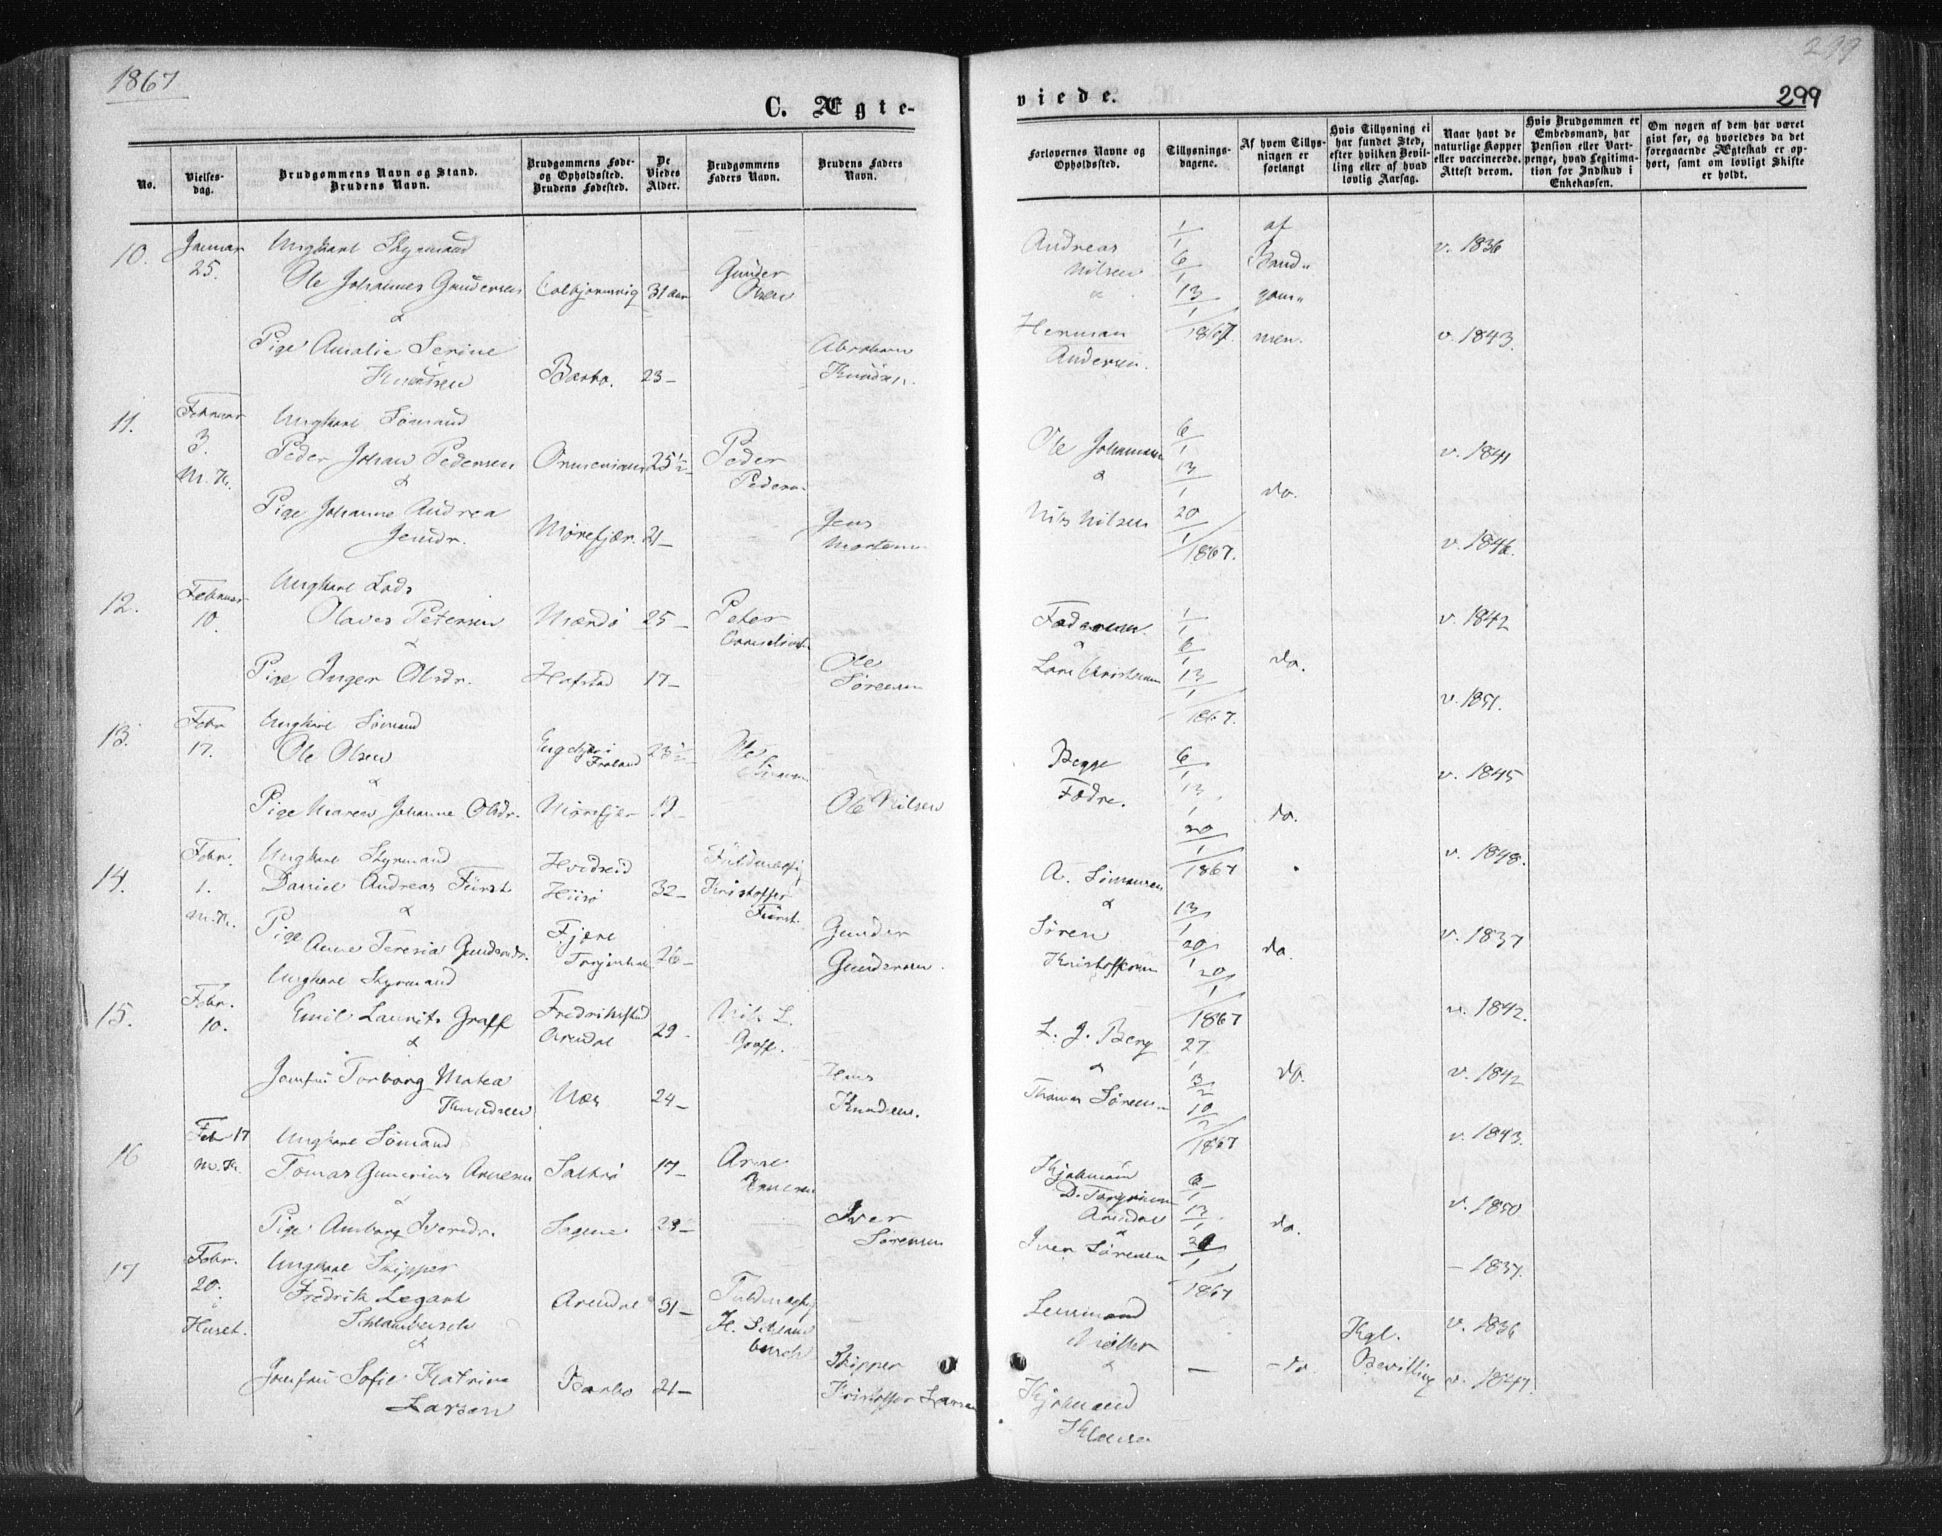 1867
299
299
C. Ægte-
viede.
No.
Vielses-
dag.
Brudgommens Navn og Stand.
Brudens Navn.
Brudgommens Føde-
og Opholdssted.
Brudens Fødested.
De
Viedes
Alder.
Brudgommens
Faders Navn.
Brudens Faders
Navn.
Forlovernes Navne og
Opholdssted.
Tillysnings-
dagene.
Af hvem Tillys-
ningen er
forlangt
Hvis Tillysning ei
har fundet Sted,
efter hvilken Bevil-
ling eller af hvad
lovlig Aarsag.
Naar havt de
naturlige Kopper
eller vaccinerede.
Attest derom.
Hvis Brudgommen er
Embedsmand, har
Pension eller Vart-
penge, hvad Legitima-
tion for Indskud i
Enkekassen.
Om nogen af dem har været
givt før, og hvorledes da det
foregaaende Ægteskab er op-
hørt, samt om lovligt Skifte
er holdt.
10.
Januar
25.
Ungkarl Styrmand
Ole Johannes Gundersen
&
Pige Amalie Serine
Knudsen
Colbjørnsvig 31 aar
Barbo. 23-
Gunder
Olsen
Abraham
Knudsen.
Andreas
Nilsen
&
Herman
Andersen.
1/1
6/1
13/1
1867.
af
Brud-
gom-
men.
v. 1836
v. 1843.
11.
Februar
3.
M. K.
Ungkarl Sømand
Peder Johan Pedersen
&
Pige Johanne Andrea
Jensdr.
25½
Mørefjær. 21-
Peder
Peders.
Jens
Mortens.
Ole Johannesen
&
Nils Nilsen
6/1
13/1
20/1
1867.
do.
v. 1841
v. 1846.
12.
Februar
10.
Ungkarl Lods
Olaves Petersen
&
Pige Inger Olsdr.
Mærdø 25-
Hafstad 17-
Peter
Ole
Sørensen
Faderen.
&
Lars Christensen
1/1
6/1
13/1
1867.
do.
v. 1842
v. 1851.
13.
Febr.
17.
Ungkarl Sømand
Ole Olsen
&
Pige Maren Johanne Olsdr.
Frøland 23½
Mørefjær 19-
Ole
Ole Nilsen
Begge
Fædre.
6/1
13/1
20/1
1867
do.
v. 1845
v. 1848.
14.
Febr.
1.
M. K.
Ungkarl Styrmand
Daniel Andreas Fürst
&
Pige
Anne Teresia Gundersdr.
Hvidesid
Hisø 32-
Fjære
26-
Fuldmægtig
Kristoffer
Fürst.
Gunder
Gundersen.
A. Simonsen
&
Søren
Kristoffersen
13/1
20/1
1867
do.
v. 1837
v. 1842.
15.
Febr.
10.
Ungkarl Styrmand
Emil Laurits Graff
&
Jomfru Torborg Matea
Knudsen
Fredrikstad
Arendal 29-
Næs 24-
Nils L.
Graff.
Hans
Knudsen.
L. J. Berg
&
Thomas Sørensen
27/1
3/2
10/2
1867
do.
v. 1842
v. 1843.
16
Febr 17
M. K.
Ungkarl Sømand
Tomas Gunerius Arnesen
&
Pige Amborg Iversdr.
Saltrø 17-
Sagene 23-
Arne
Iver
Sørensen
Kjøbmand
Arendal
&
Iver Sørensen
6/1
13/1
20/1
1867
do.
v. 1850
- 1837.
17
Febr.
20.
i
Huset.
Ungkarl Skipper
Fredrik Legant
Schlanbusch
&
Jomfru Sofie Katrine
Larsen
Arendal 31-
Barbo 21-
Fuldmægtig
H. Schlanbusch
Skipper
Kristoffer Larsen
Møller
&
Kjøbmand
-
- do
Kgl.
Bevilling
v. 1836
v. 1847.